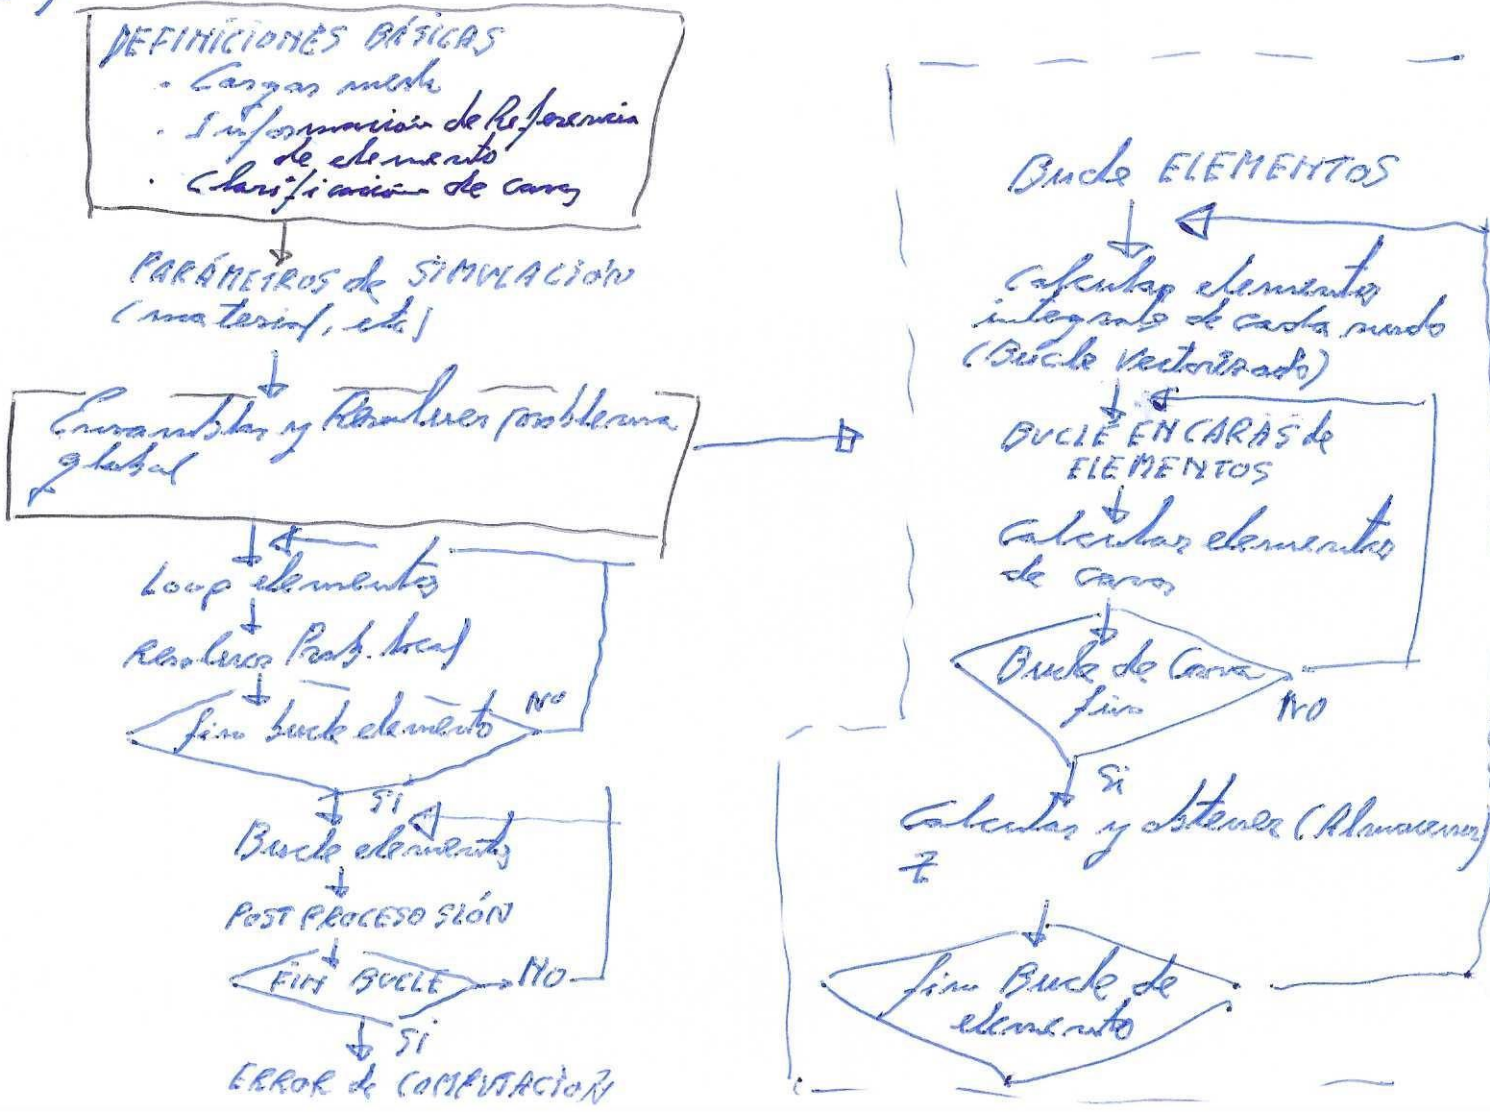 DEFINICIONES BÁSICAS
· Cargar mesh
· Información de Referencia
de elemento
· Clasificación de caras
PARÁMETROS de SIMULACIÓN
(material, etc)
Ensamblar y Resolver problema
global
Loop elementos
Resolver Prob. local
fin bucle elemento
NO
Si
Bucle elementos
POST PROCESO
FIN BUCLE
NO
Si
ERROR de COMPUTACIÓN
Bucle ELEMENTOS
Calcular elementos
integrals de cada nudo
(Bucle Vectorizado)
BUCLE EN CARAS de
ELEMENTOS
Calcular elementos
de caras
Bucle de Cara
fin
NO
Si
Calcular y obtener (Almacenar)
fin Bucle de
elemento